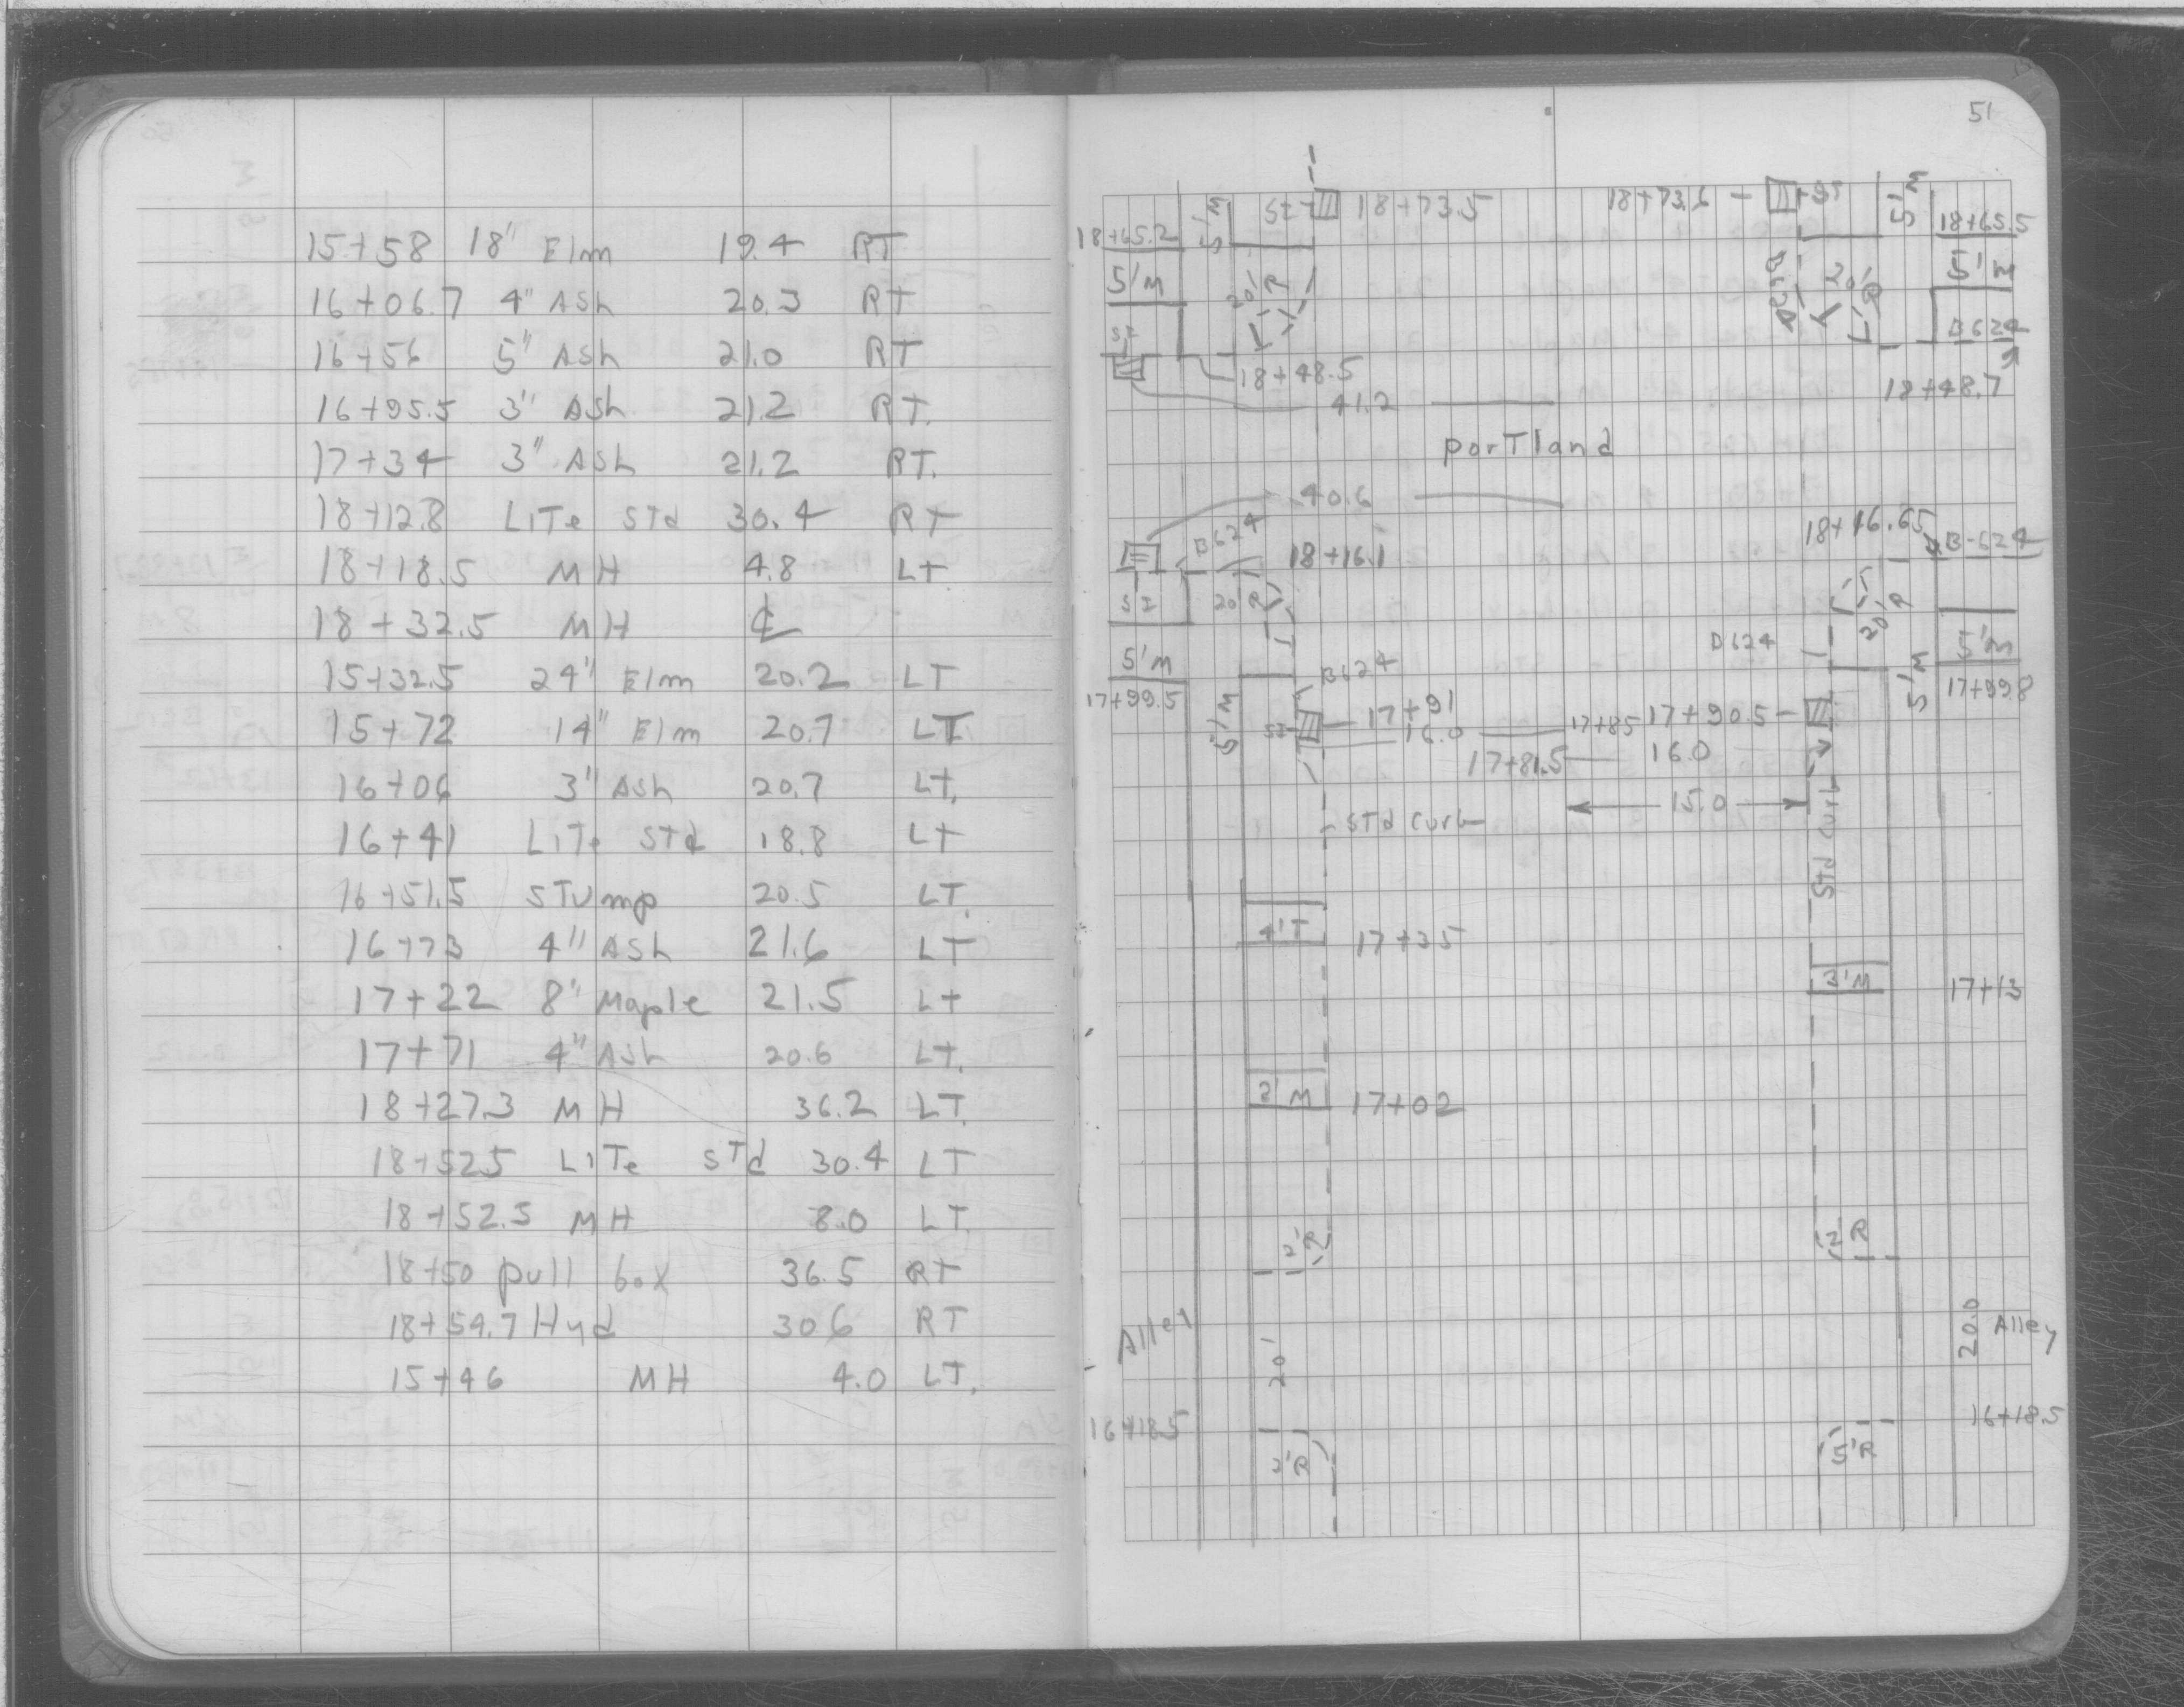 15+58 18" Elm 19.4 RT
16+06.7 4" ASh 20.3 RT
16+56 5" ASh 21.0 RT
16+95.5 3" ASh 21.2 RT.
17+34 3" ASh 21.2 RT.
18+12.8 LITe STd 30.4 RT
18+18.5 MH 4.8 LT
18+32.5 MH ℄
15+32.5 24" Elm 20.2 LT
15+72 14" Elm 20.7 LT
16+06 3" ASh 20.7 LT.
16+41 LITe STd 18.8 LT
16+51.5 STump 20.5 LT.
16+73 4" ASh 21.6 LT
17+22 8" Maple 21.5 LT
17+71 4" ASh 20.6 LT.
18+27.3 MH 36.2 LT.
18+52.5 LITe STd 30.4 LT
18+52.5 MH 8.0 LT.
18+50 pull box 36.5 RT
18+54.7 Hyd 30.6 RT
15+46 MH 4.0 LT.
51
5'M SI 18+73.5 18+73.6 SI 5'M
18+65.2 18+65.5
5'M 20'R B624 20'R 5'M
SI B624
18+48.5 18+48.7
41.2
porTland
40.6
B624 18+16.1 18+16.65 B-624
SI 20'R 20'R
5'M B624 B624 5'M 5'M
17+99.5 17+99.8
5'M SI 17+91 17+85 17+90.5
16.0 16.0
17+81.5
15.0
STd Curb STd Curb
4'T 17+35
3'M 17+13
3'M 17+02
2'R 2'R
Alley 20' 20.0 Alley
16+18.5 16+18.5
2'R 5'R